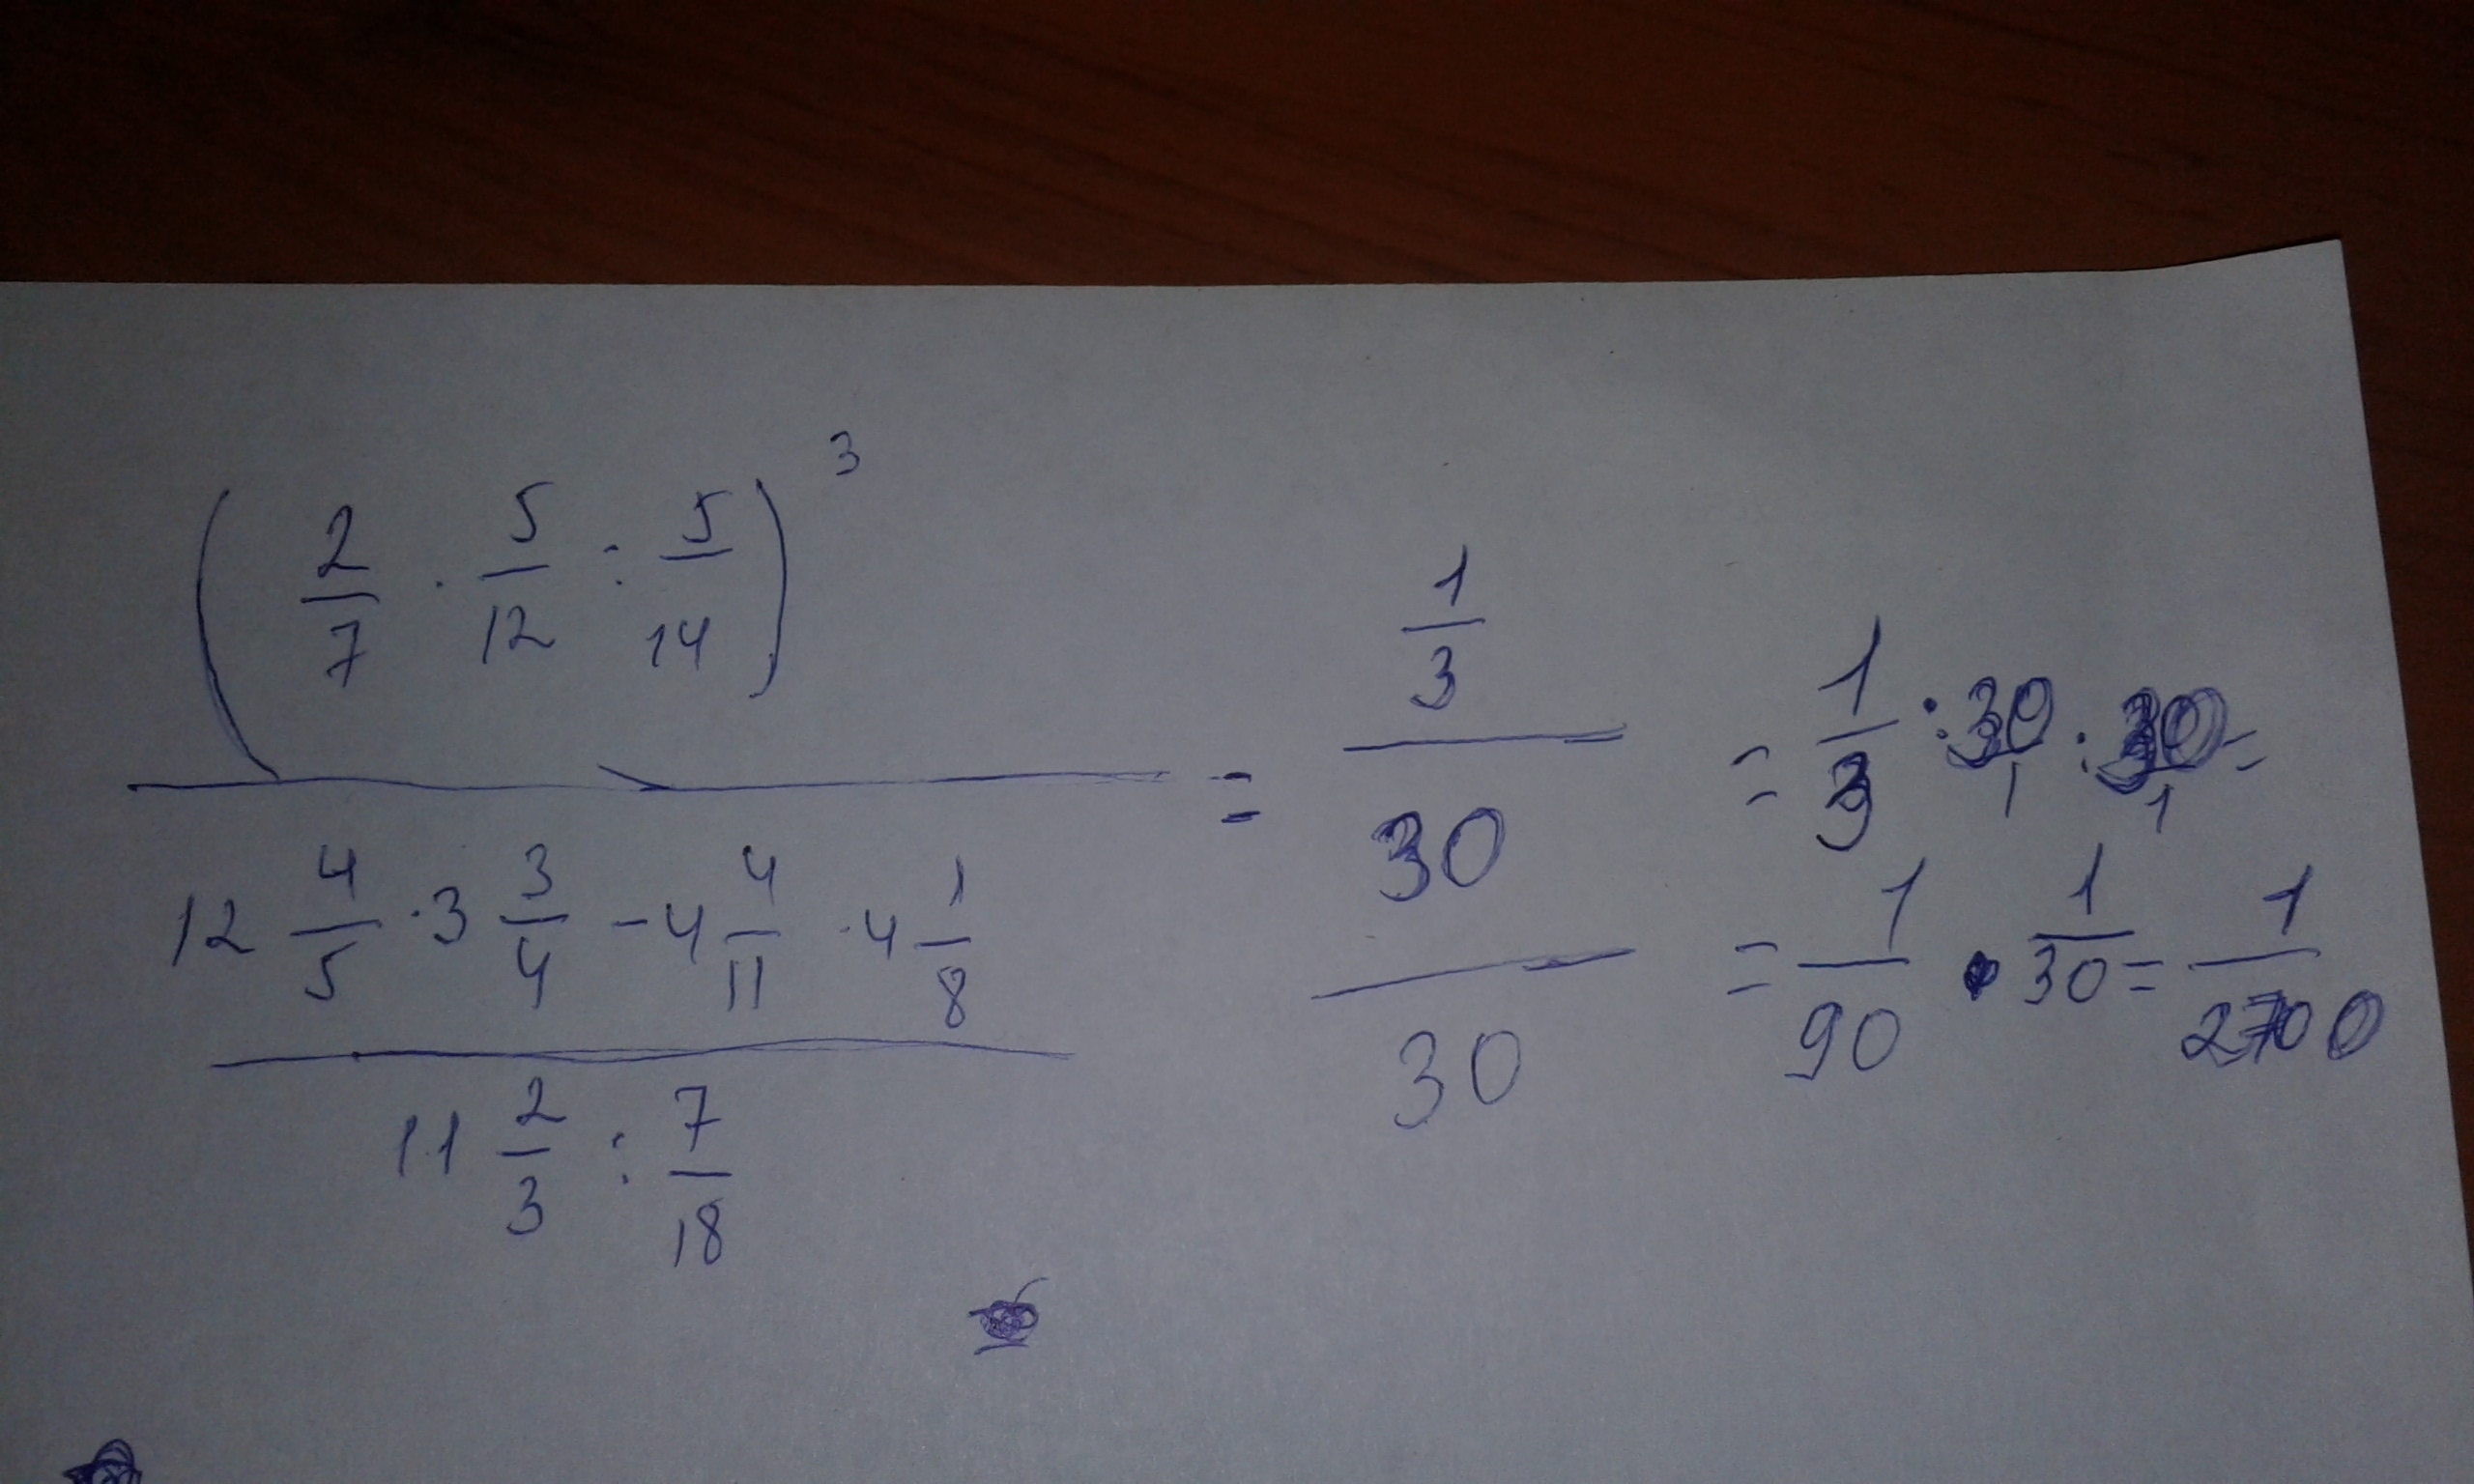 (2/7 · 5/12 : 5/14)³
12 4/5 · 3 3/4 - 4 4/11 · 4 1/8
11 2/3 : 7/18
=
1/3
30
30
= 1/3 : 30/1 : 30/1 =
= 1/90 · 1/30 = 1/2700